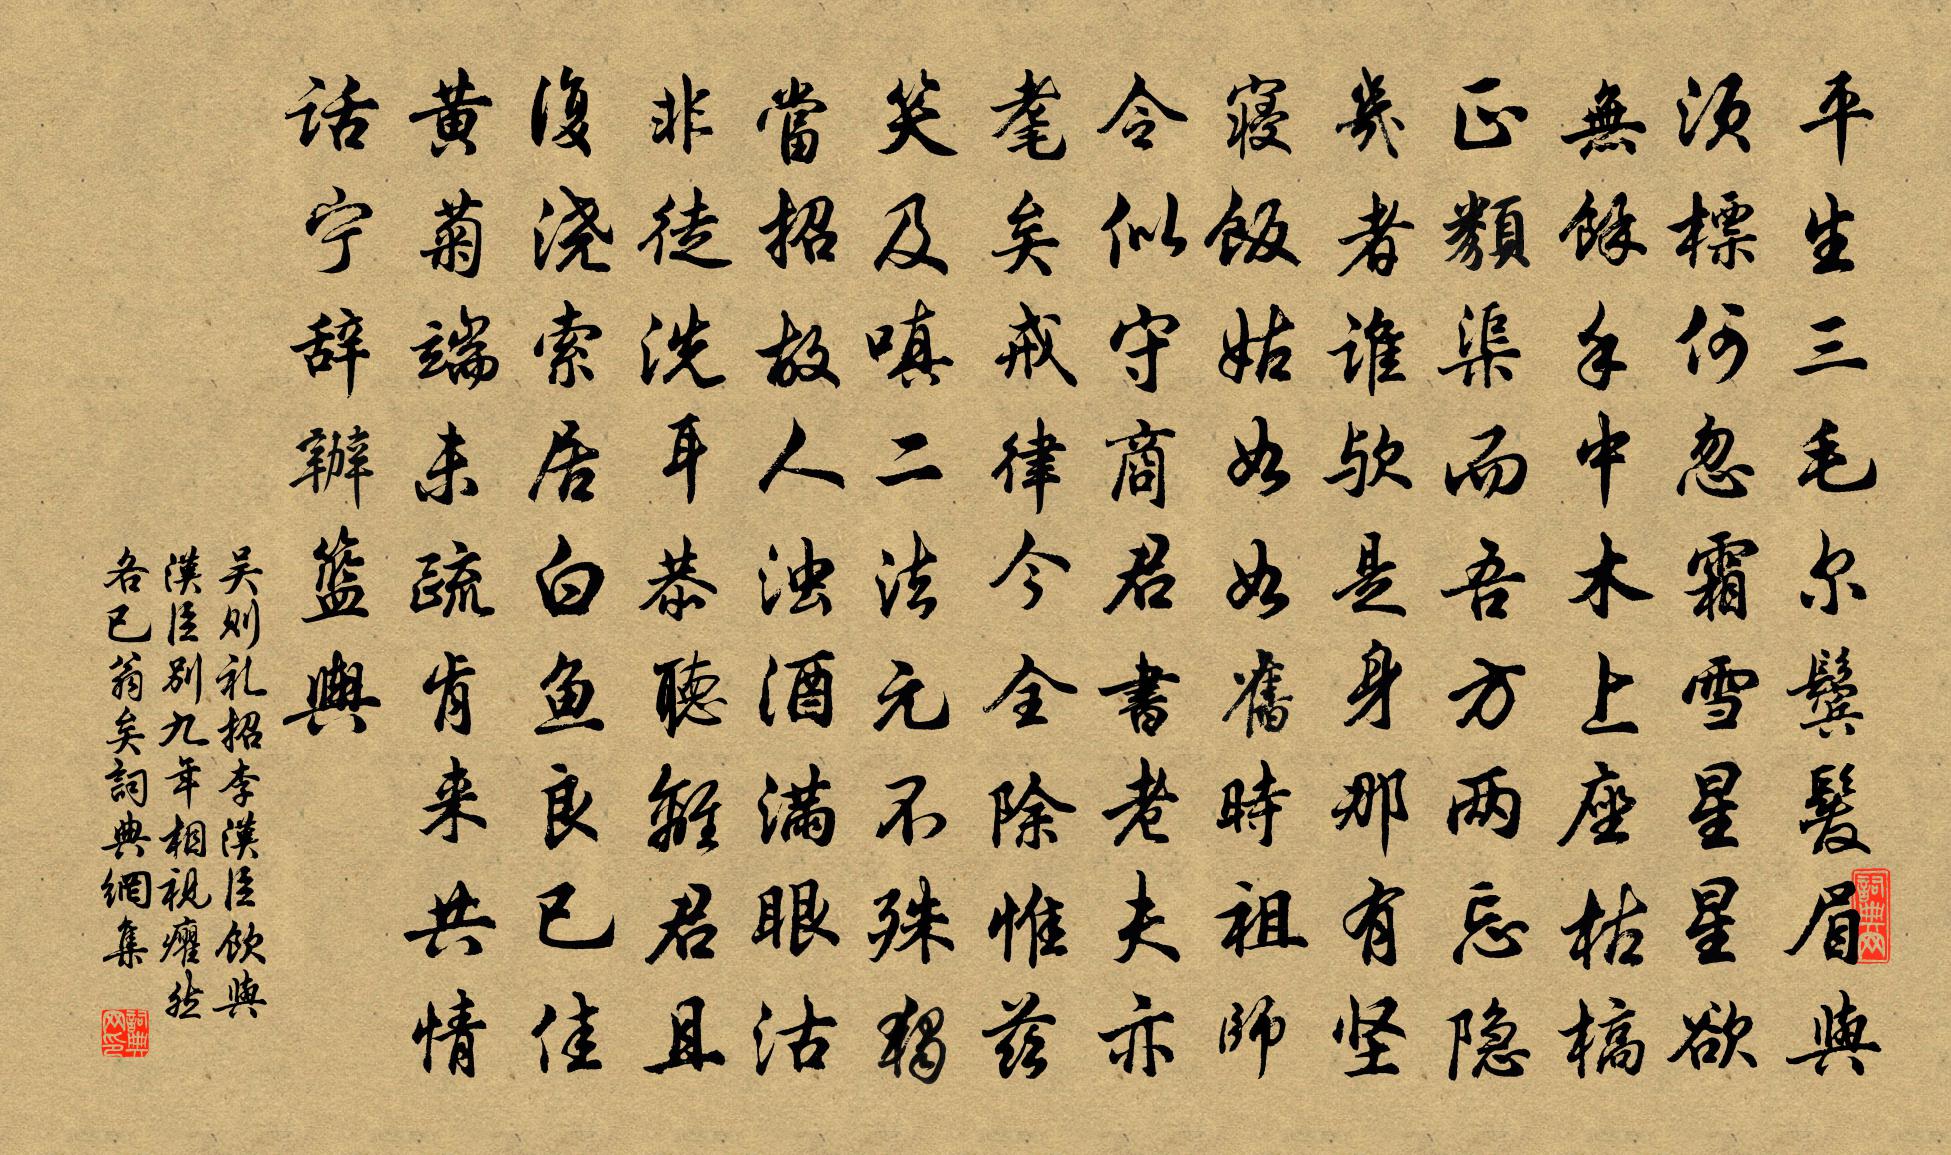 平生三毛尔鬓髮眉與
须標何忽霜雪星星欲
無餘手中木上座枯槁
正類渠而吾方两忘隐
幾者谁欤是身那有坚
寝飯姑如如舊時祖師
令似守商君書老夫亦
耄矣戒律今全除惟兹
笑及嗔二法元不殊獨
當招故人浊酒满眼沽
非徒洗耳恭聽難君且
復浇索居白鱼良已佳
黄菊端未疏肯来共情
话宁辞辦籃輿
吴则礼招李漢臣飲與
漢臣别九年相視癯然
各已翁矣詞典網集
詞典网
詞典网印